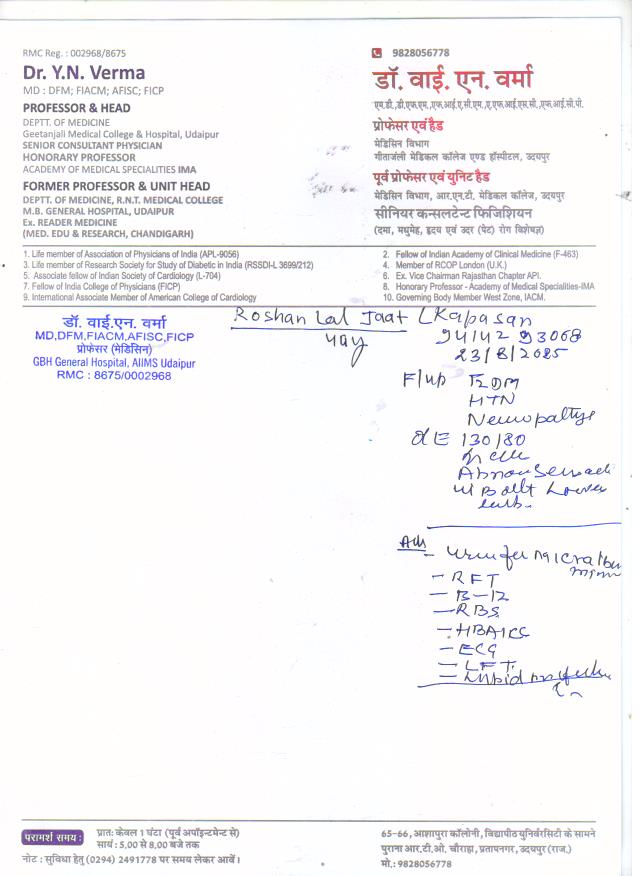 RMC Reg. : 002968/8675
Dr. Y.N. Verma
MD : DFM; FIACM; AFISC; FICP
PROFESSOR & HEAD
DEPTT. OF MEDICINE
Geetanjali Medical College & Hospital, Udaipur
SENIOR CONSULTANT PHYSICIAN
HONORARY PROFESSOR
ACADEMY OF MEDICAL SPECIALITIES IMA
FORMER PROFESSOR & UNIT HEAD
DEPTT. OF MEDICINE, R.N.T. MEDICAL COLLEGE
M.B. GENERAL HOSPITAL, UDAIPUR
Ex. READER MEDICINE
(MED. EDU & RESEARCH, CHANDIGARH)
9828056778
डॉ. वाई. एन. वर्मा
एम.डी.,डी.एफ.एम.,एफ.आई.ए.सी.एम.,ए.एफ.आई.एस.सी.,एफ.आई.सी.पी.
प्रोफेसर एवं हैड
मेडिसिन विभाग
गीतांजली मेडिकल कॉलेज एण्ड हॉस्पीटल, उदयपुर
पूर्व प्रोफेसर एवं युनिट हैड
मेडिसिन विभाग, आर.एन.टी. मेडिकल कॉलेज, उदयपुर
सीनियर कन्सलटेन्ट फिजिशियन
(दमा, मधुमेह, हृदय एवं उदर (पेट) रोग विशेषज्ञ)
1. Life member of Association of Physicians of India (APL-9056)
3. Life member of Research Society for Study of Diabetic in India (RSSDI-L 3699/212)
5. Associate fellow of Indian Society of Cardiology (L-704)
7. Fellow of India College of Physicians (FICP)
9. International Associate Member of American College of Cardiology
2. Fellow of Indian Academy of Clinical Medicine (F-463)
4. Member of RCOP London (U.K.)
6. Ex. Vice Chairman Rajasthan Chapter API.
8. Honorary Professor - Academy of Medical Specialities-IMA
10. Governing Body Member West Zone, IACM.
डॉ. वाई.एन. वर्मा
MD,DFM,FIACM,AFISC,FICP
प्रोफेसर (मेडिसिन)
GBH General Hospital, AIIMS Udaipur
RMC : 8675/0002968
Roshan Lal Jaat (Kapasan
44y
94142 93068
23/8/2025
F/up T2DM
HTN
Neuropathy
O/E 130/80
Lower
Adv
- Urine for Microalbu
- RFT
- B-12
- RBS
- HBA1C
- ECG
- LFT
- Lipid profile
परामर्श समय :
प्रात: केवल 1 घंटा (पूर्व अपॉइन्टमेन्ट से)
सायं : 5,00 से 8,00 बजे तक
नोट : सुविधा हेतु (0294) 2491778 पर समय लेकर आवें।
65-66, आशापुरा कॉलोनी, विद्यापीठ युनिर्वरसिटी के सामने
पुराना आर.टी.ओ. चौराहा, प्रतापनगर, उदयपुर (राज.)
मो.: 9828056778